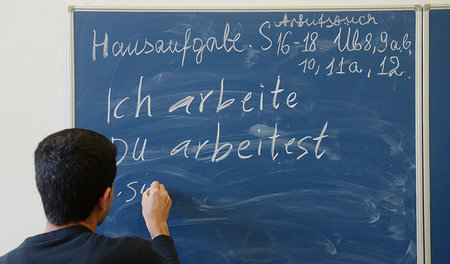 Arbeitsbuch
Hausaufgabe. S 16-18. Üb 8, 9ab,
10, 11a, 12.
Ich arbeite
Du arbeitest